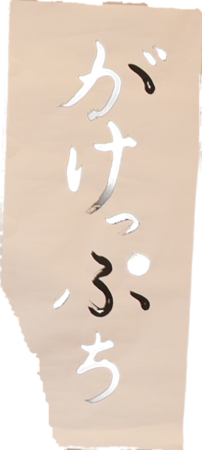 がけっぷち